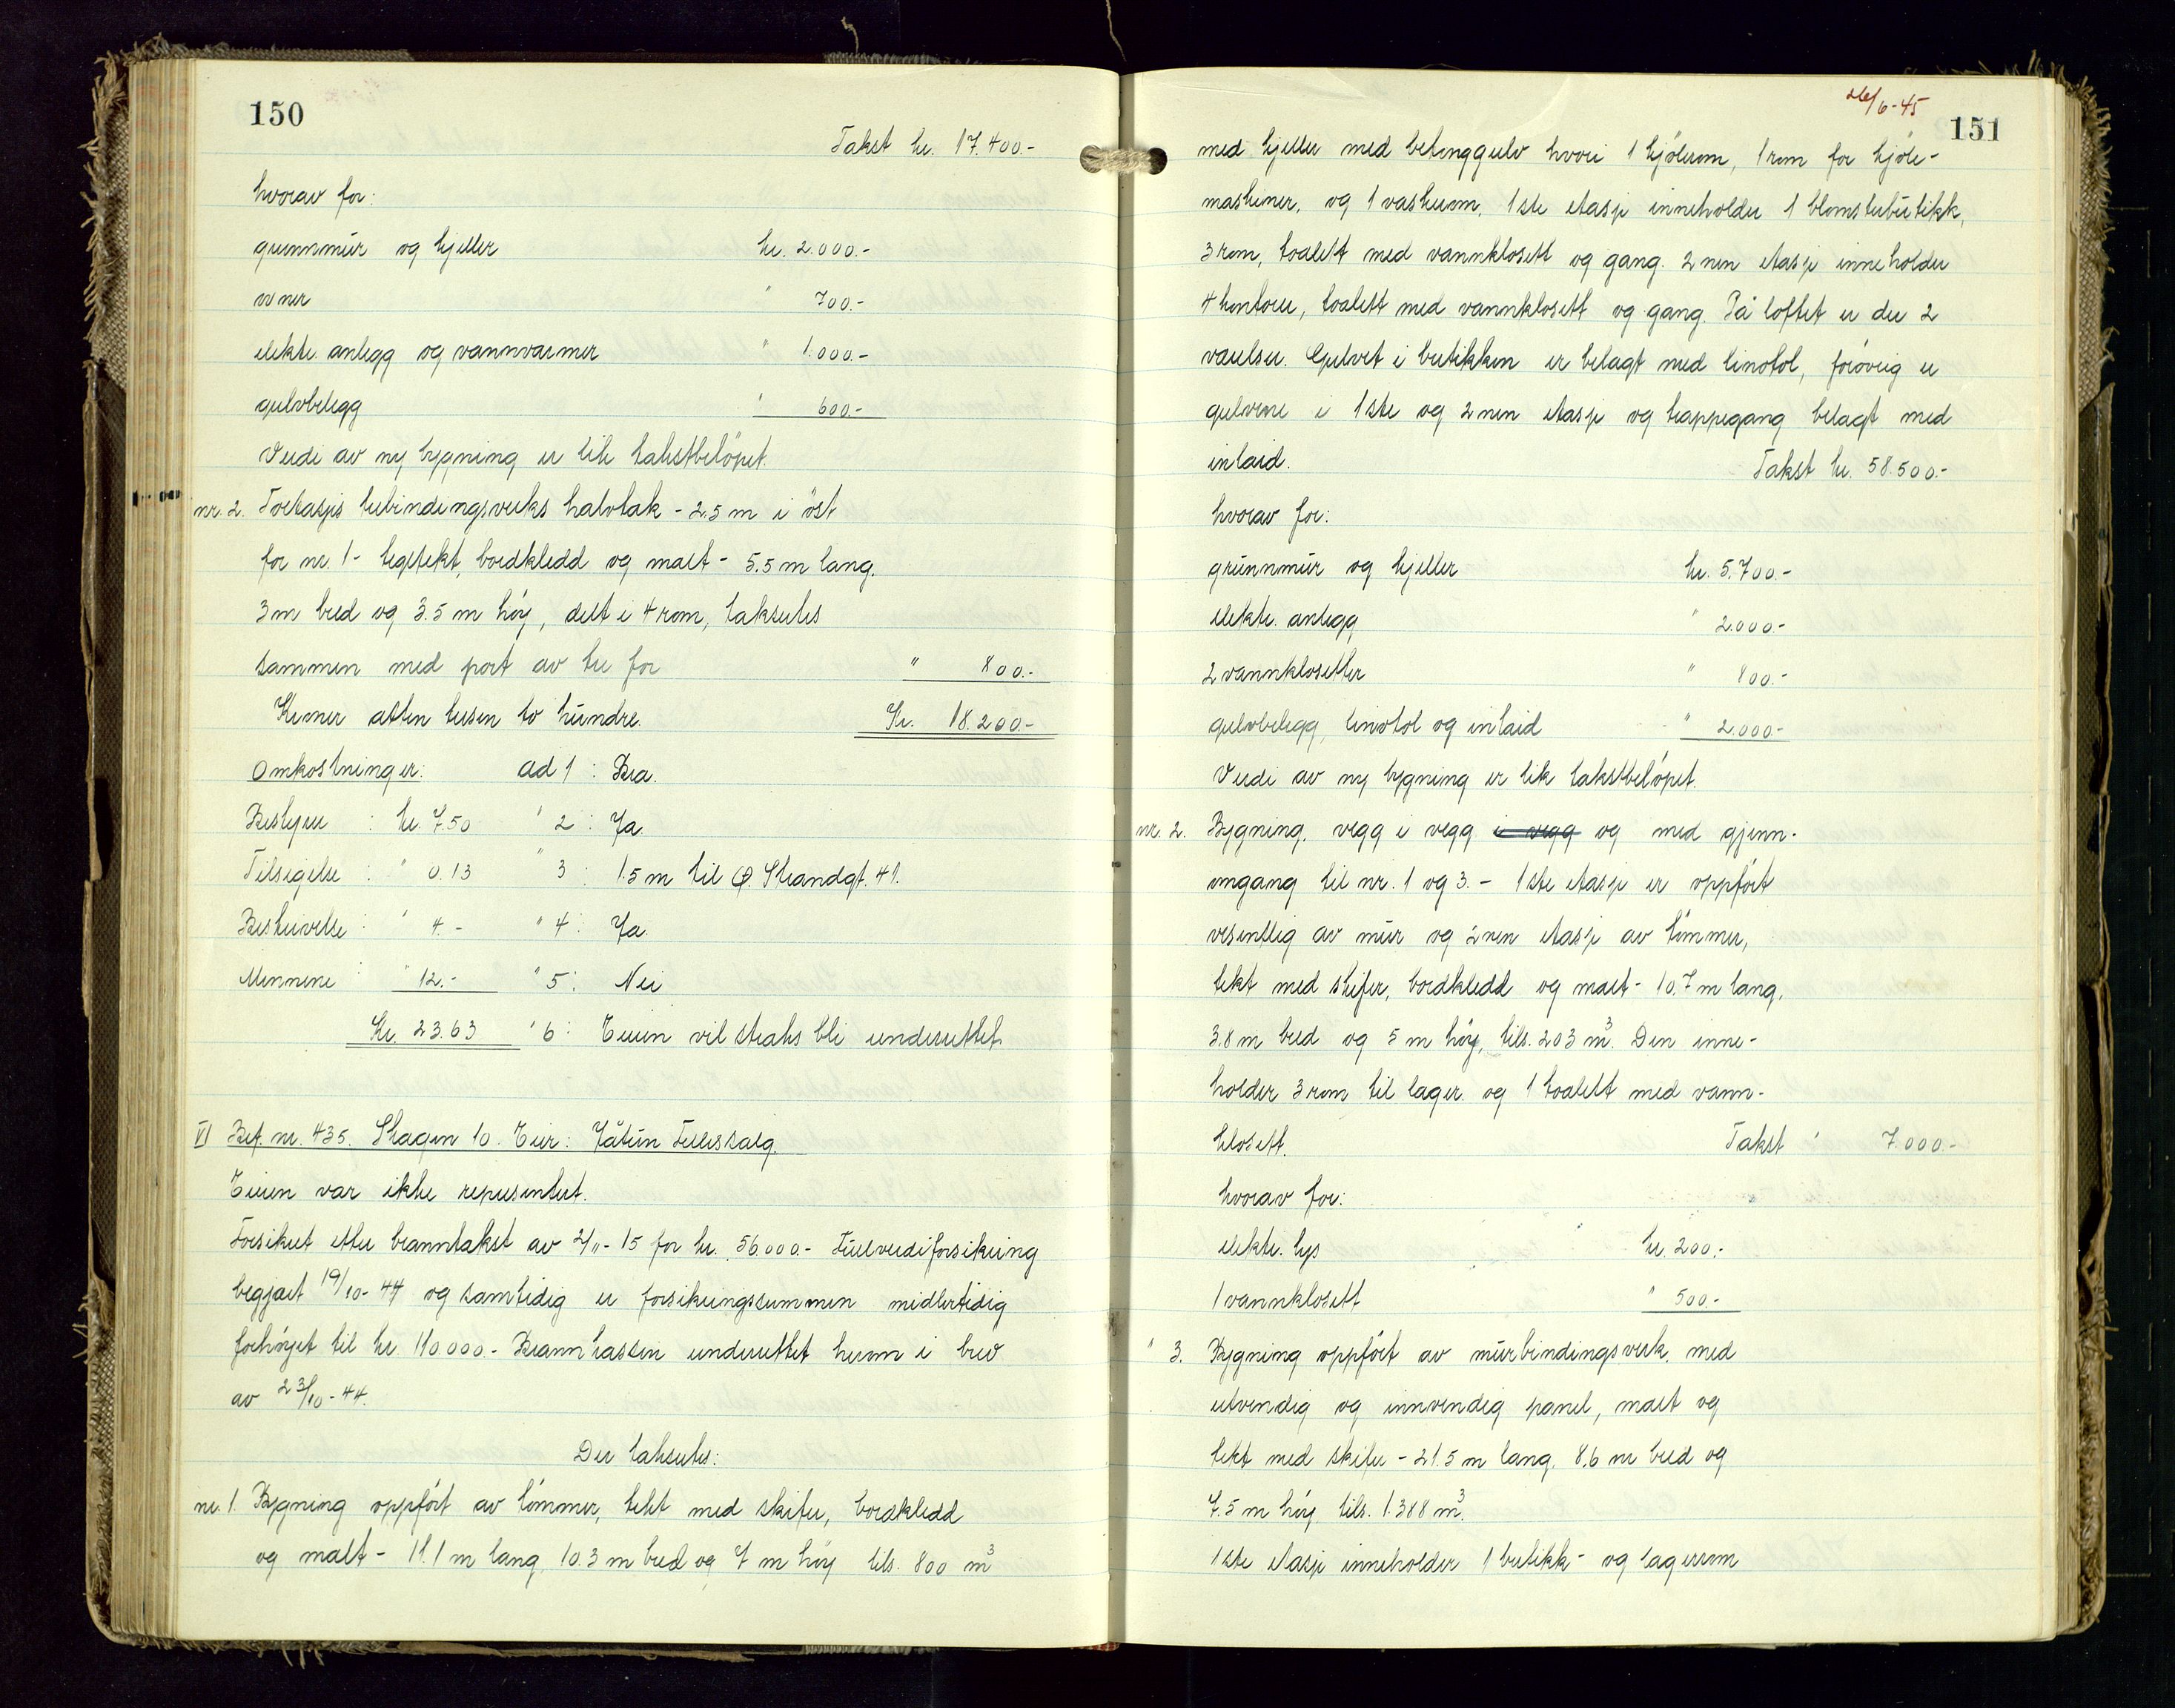 150
Takst kr. 17.400.-
hvorav for:
grunnmur og kjeller kr. 2.000.-
ovner " 700.-
elektr. anlegg og vannvarmer " 1.000.-
gulvbelegg " 600.-
Verdi av ny bygning er lik takstbeløpet.
nr. 2. Toetasjes trebindingsverks halvtak - 2.5 m i öst
for nr. 1 - tegltekt, bordkledd og malt - 5.5 m lang.
3 m bred og 3.5 m høy, delt i 4 rom, takseres
sammen med port av tre for " 800.-
Kroner atten tusen to hundre. Kr. 18.200.-
Omkostninger: ad 1 : Bra.
Bestyrer : kr. 7.50 " 2 : Ja.
Tilsigelse : " 0.13 " 3 : 1.5 m til Ø. Strandgt. 41.
Beskrivelse : " 4.- " 4 : Ja.
Mennene : " 12.- " 5 : Nei
Kr. 23.63 " 6 : Eieren vil straks bli underrettet.
VI Bef. nr. 435. Skagen 10. Eier: Jåtun Fellessalg.
Eieren var ikke representert.
Forsikret etter branntakst av 2/11-15 for kr. 56.000.- Fullverdiforsikring
begjært 19/10-44 og samtidig er forsikringssummen midlertidig
forhøyet til kr. 110.000.- Brannkassen underrettet herom i brev
av 23/10-44.
Der takseres:
nr. 1. Bygning oppført av tømmer, tekt med skifer, bordkledd
og malt - 11.1 m lang, 10.3 m bred og 7 m høy tils. 800 m³
26/6-45
151
med kjeller med betonggulv hvori 1 kjølerom, 1 rom for kjøle-
maskiner, og 1 vaskerom. 1ste etasje inneholder 1 blomsterbutikk,
3 rom, toalett med vannklosett og gang. 2nen etasje inneholder
4 kontorer, toalett med vannklosett og gang. På loftet er der 2
værelser. Gulvet i butikken er belagt med linotol, forøvrig er
gulvene i 1ste og 2nen etasje og trappegang belagt med
inlaid. Takst kr. 58.500.-
hvorav for:
grunnmur og kjeller kr. 5.700.-
elektr. anlegg " 2.000.-
2 vannklosetter " 800.-
gulvbelegg, linotol og inlaid " 2.000.-
Verdi av ny bygning er lik takstbeløpet.
nr. 2. Bygning, vegg i vegg i vegg og med gjenn-
omgang til nr. 1 og 3. - 1ste etasje er oppført
vesentlig av mur og 2nen etasje av tømmer,
tekt med skifer, bordkledd og malt - 10.7 m lang,
3.8 m bred og 5 m høy, tils. 203 m³. Den inne-
holder 3 rom til lager og 1 toalett med vann-
klosett. Takst " 7.000.-
hvorav for:
elektr. lys kr. 200.-
1 vannklosett " 500.-
" 3. Bygning oppført av murbindingsverk, med
utvendig og innvendig panel, malt og
tekt med skifer - 21.5 m lang, 8.6 m bred og
7.5 m høy, tils. 1.388 m³.
1ste etasje inneholder 1 butikk- og lagerrom